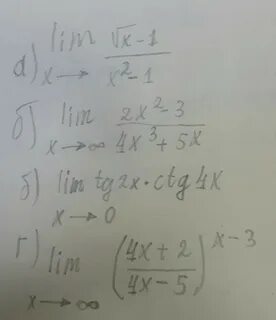 а) lim x→ (√x-1)/(x²-1)
б) lim x→∞ (2x²-3)/(4x³+5x)
б) lim x→0 tg2x·ctg4x
г) lim x→∞ ((4x+2)/(4x-5))^(x-3)